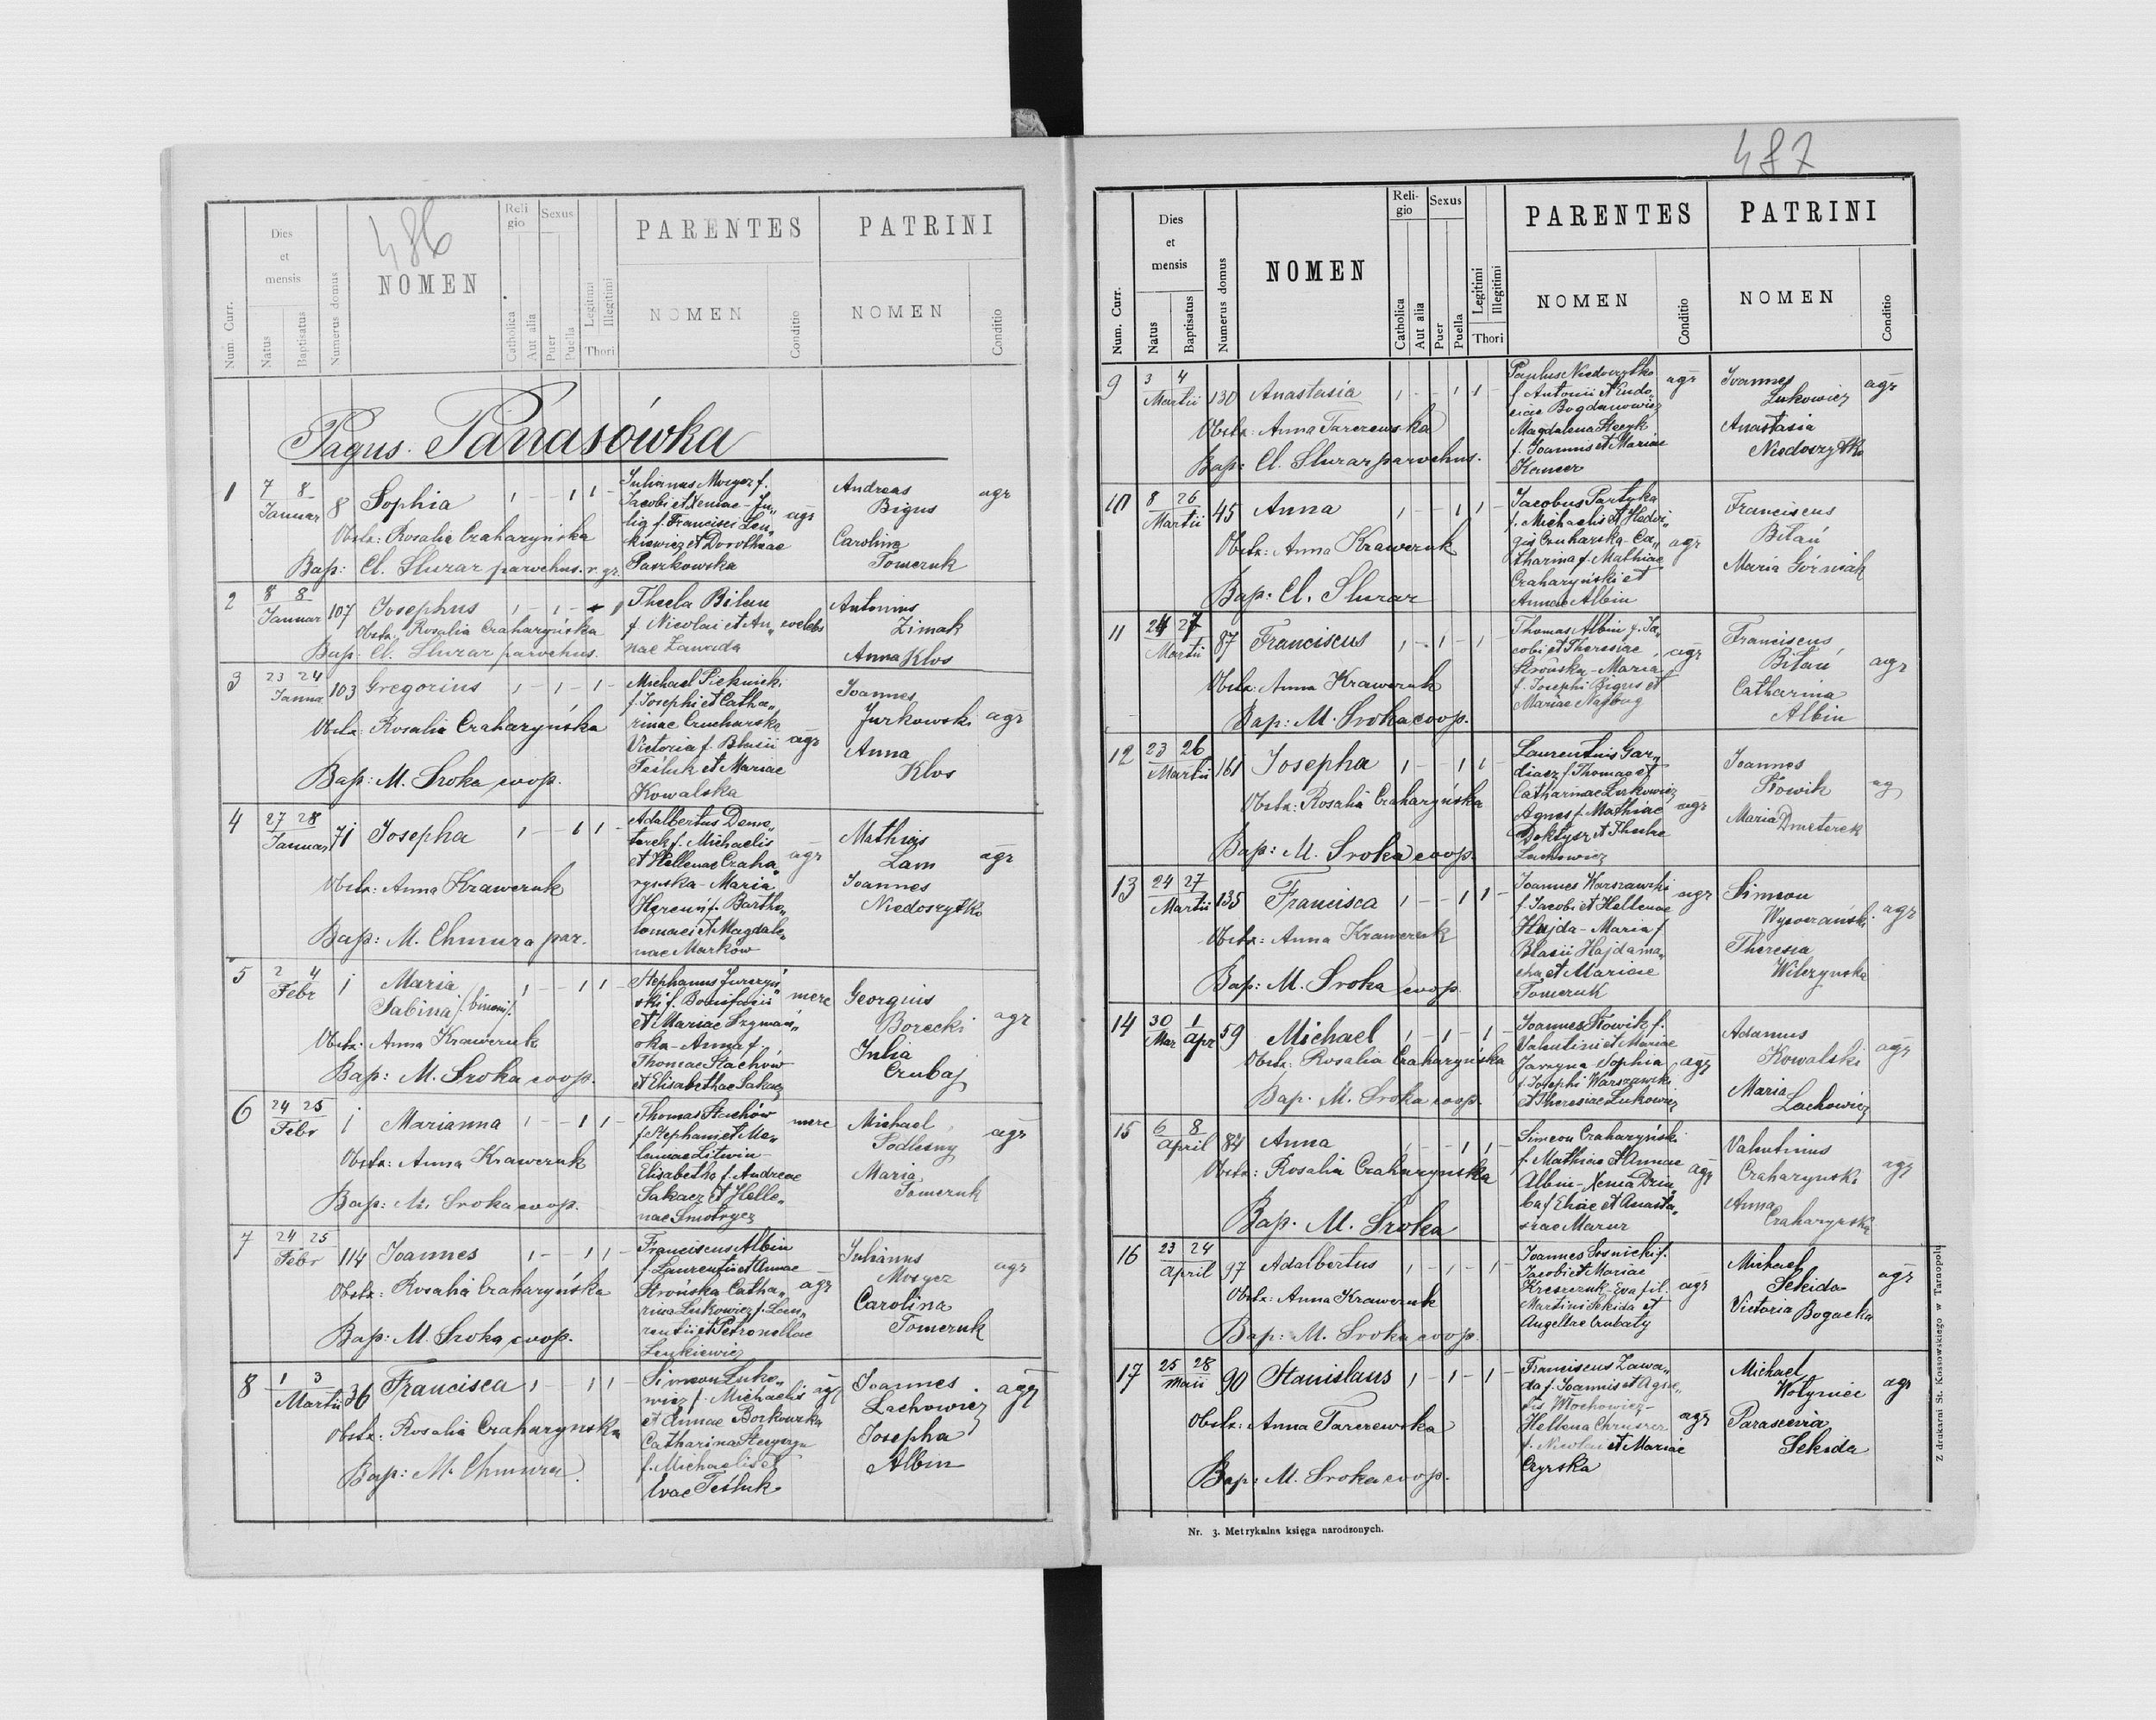 486
Num. Curr.
Dies et mensis
Natus
Baptisatus
Numerus domus
NOMEN
Religio
Catholica
Aut alia
Sexus
Puer
Puella
Legitimi
Illegitimi
Thori
PARENTES
NOMEN
Conditio
PATRINI
NOMEN
Conditio
Pagus. Panasówka
1 7 8 Januar 8 Sophia 1 - - 1 1 -
Obstx: Rosalia Czaharyńska
Bap: Cl. Slurar parochus. r. gr.
Julianus Moryez f.
Jacobi et Xeniae - Ju„
lia f. Francisci Leu„
kiewicz et Dorotheae
Paszkowska
agr
Andreas
Bigus
Carolina
Tomczuk
agr
2 8 8 Januar 107 Josephus 1 - 1 -
Obstx: Rosalia Czaharyńska
Bap: Cl. Slurar parochus.
Thecla Bilan
f. Nicolai et An„
nae Zawada
coelebs
Antonius
Zimak
Anna Klos
3 23 24 Januar 103 Gregorius 1 - 1 - 1 -
Obstx: Rosalia Czaharyńska
Bap: M. Sroka coop.
Michael
f. Josephi et Catha„
rinae Czucharska
Victoria f. Blasii
Teśluk et Mariae
Kowalska
agr
Joannes
Jurkowski
Anna
Klos
agr
4 27 28 Januar 71 Josepha 1 - - 1 1 -
Obstx: Anna Krawczuk
Bap: M. Chmura par.
Adalbertus Dme„
terek f. Michaelis
et Hellenae Czaha„
rynska - Maria
f. Bartho„
lomaei et Magdale„
nae Marków
agr
Mathias
Lam
Joannes
Niedoszytko
agr
5 2 4 Febr 1 Maria
Sabina /: binom :/ 1 - - 1 1 -
Obstx: Anna Krawczuk
Bap: M. Sroka coop.
Stephanus Jurczyń„
ski f. Bonifacii
et Mariae Szymań„
ska - Anna f.
Thomae Stachów
et Elisabethae Sakacz
merc
Georgius
Borecki
Julia
Czubaj
agr
6 24 25 Febr 1 Marianna 1 - - 1 1 -
Obstx: Anna Krawczuk
Bap: M. Sroka coop.
Thomas Stachów
f. Stephani et Me„
laniae Litwin -
Elisabetha f. Andreae
Sakacz et Helle„
nae Smotrycz
merc
Michael
Podlesny
Maria
Tomczuk
agr
7 24 25 Febr 114 Joannes 1 - - 1 1 -
Obstx: Rosalia Czaharyńska
Bap: M. Sroka coop.
Franciscus Albin
f. Laurentii et Annae
Strońska Catha„
rina Lukowicz f. Lau„
rentii et Petronellae
Leukiewicz
agr
Julianus
Moryez
Carolina
Tomczuk
agr
8 1 3 Martii 36 Francisca 1 - - 1 1 -
Obstx: Rosalia Czaharynska
Bap: M. Chmura.
Simeon Luko„
wicz f. Michaelis
et Annae Borkowska
Catharina
f. Michaelis et
Evae Teśluk
agr
Joannes
Lachowicz
Josepha
Albin
agr
487
Num. Curr.
Dies et mensis
Natus
Baptisatus
Numerus domus
NOMEN
Religio
Catholica
Aut alia
Sexus
Puer
Puella
Legitimi
Illegitimi
Thori
PARENTES
NOMEN
Conditio
PATRINI
NOMEN
Conditio
9 3 4 Martii 130 Anastasia 1 - - 1 1 -
Obstx: Anna Tarczewska
Bap: Cl. Slurar parochus.
Paulus Niedoszytko
f. Antonii et Eudo„
ciae Bogdanowicz
Magdalena Stecyk
f. Joannis et Mariae
agr
Joannes
Lukowicz
Anastasia
Niedoszytko
agr
10 8 26 Martii 45 Anna 1 - - 1 1 -
Obstx: Anna Krawczuk
Bap: Cl. Slurar
Jacobus Partyka
f. Michaelis et Hedvi„
gis Czuharska - Ca„
tharina f. Mathiae
Czaharyński et
Annae Albin
agr
Franciscus
Bitań
Maria Górniak
11 24 27 Martii 87 Franciscus 1 - 1 - 1 -
Obstx: Anna Krawczuk
Bap: M. Sroka coop.
Thomas Albin f. Ja„
cobi et Theresiae
Strońska - Maria
f. Josephi Bigus et
Mariae
agr
Franciscus
Bitań
Catharina
Albin
agr
12 23 26 Martii 161 Josepha 1 - - 1 1 -
Obstx: Rosalia Czaharyńska
Bap: M. Sroka coop.
Laurentius Gar„
diasz f. Thomae et
Catharinae Lukowicz
Agnes f. Mathiae
et Theclae
Lachowicz
agr
Joannes
Słowik
Maria Dmeterek
ag
13 24 27 Martii 135 Francisca 1 - - 1 1 -
Obstx: Anna Krawczuk
Bap: M. Sroka coop.
Joannes Warszawski
f. Jacobi et Hellenae
Hajda - Maria f.
Blasii Hajdama„
cha et Mariae
Tomczuk
agr
Simeon
Theresia
Wilczynska
agr
14 30 Mar 1 Apr 59 Michael 1 - 1 - 1 -
Obstx: Rosalia Czaharyńska
Bap. M. Sroka coop.
Joannes Słowik f.
Valentini et Mariae
Jarzyna Sophia
f. Josephi Warszawski
et Theresiae Lukowicz
agr
Adamus
Kowalski
Maria
Lachowicz
agr
15 6 8 April 84 Anna 1 - - 1 1 -
Obstx: Rosalia Czaharynska
Bap. M. Sroka
Simeon Czaharyński
f. Mathiae et Annae
Albin - Xenia Dziu„
ba f. Eliae et Anasta„
siae Mazur
agr
Valentinus
Czaharynski
Anna
Czaharynska
agr
16 23 24 April 97 Adalbertus 1 - 1 - 1 -
Obstx: Anna Krawczuk
Bap: M. Sroka coop.
Joannes Sosnicki f.
Jacobi et Mariae
Kreszczuk - Eva fil.
Martini Sekida et
Angellae Czubaty
agr
Michael
Sekida
Victoria Bogacka
agr
17 25 28 Maii 90 Stanislaus 1 - 1 - 1 -
Obstx: Anna Tarczewska
Bap: M. Sroka coop.
Franciscus Zawa„
da f. Joannis et Agne„
tis Włochowicz -
Hellena
f. Nicolai et Mariae
Czyrska
agr
Michael
Wołyniec
Parascevia
Sekida
agr
Nr. 3. Metrykalna księga narodzonych.
Z drukarni St. Kossowskiego w Tarnopolu